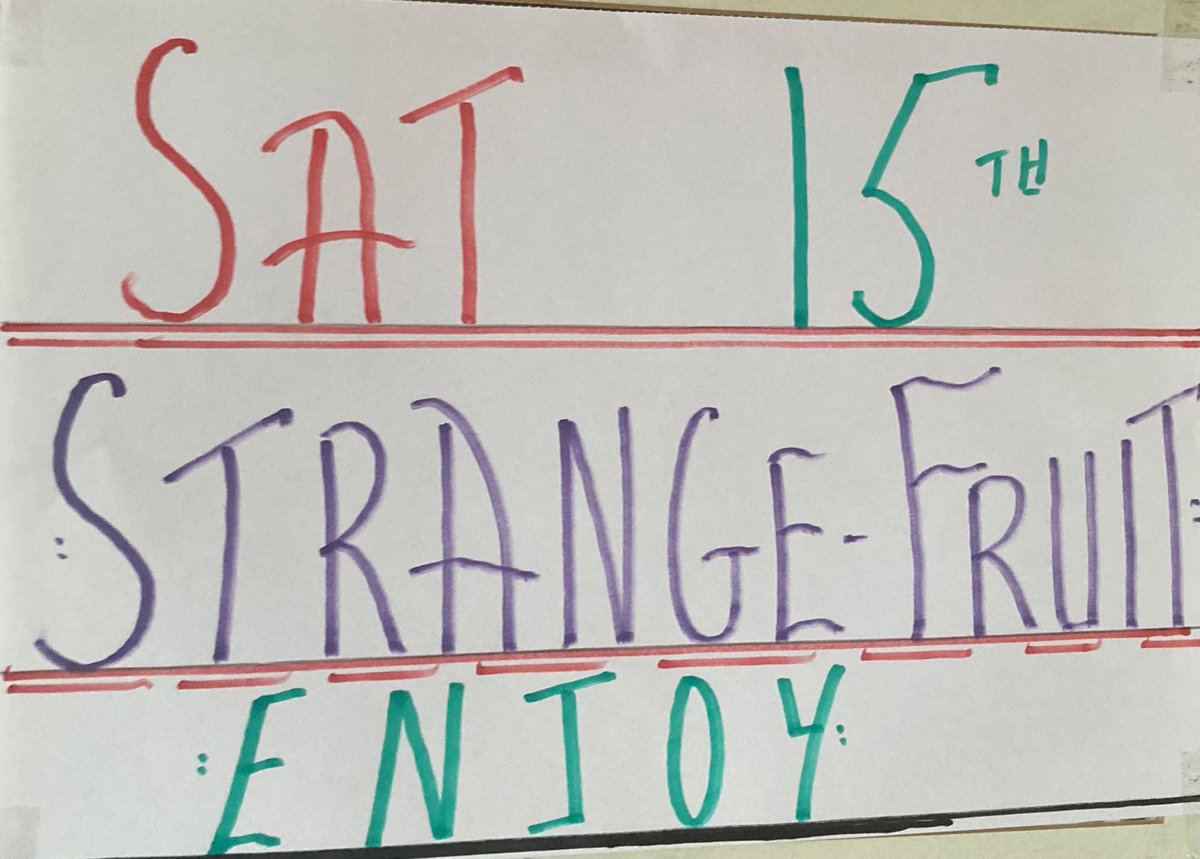 SAT 15TH
:STRANGE-FRUIT:
:ENJOY: